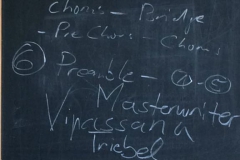 Chorus - Bridge
- Pre Chorus - Chorus
⑥ Preamble -
Masterwriter
Vipassana
Triebel